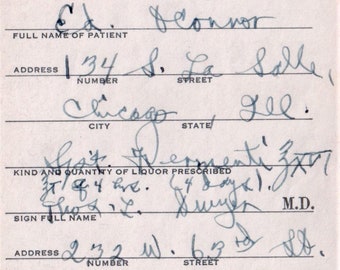 Ed. O'Connor
FULL NAME OF PATIENT
ADDRESS 134 S. La Salle,
NUMBER STREET
Chicago, Ill.
CITY STATE
Spt. Frumenti ℥XVI
KIND AND QUANTITY OF LIQUOR PRESCRIBED
q 4 hrs. (4 days).
Thos. L. Dwyer M.D.
SIGN FULL NAME
ADDRESS 232 W. 63rd St.
NUMBER STREET